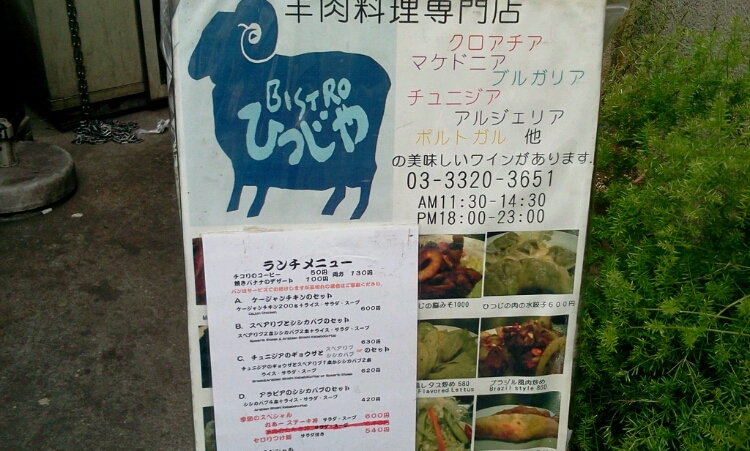 羊肉料理専門店
BISTRO
ひつじや
クロアチア
マケドニア
ブルガリア
チュニジア
アルジェリア
ポルトガル 他
の美味しいワインがあります.
03-3320-3651
AM11:30-14:30
PM18:00-23:00
ランチメニュー
チコリのコーヒー 50円 両方 130円
焼きバナナのデザート 100円
A. ケージャンチキンのセット
ケージャンチキン200g+ライス・サラダ・スープ
600円
B. スペアリブとシシカバブのセット
スペアリブ2本シシカバブ2本+ライス・サラダ・スープ
630円
C. チュニジアのギョウザと スペアリブ or シシカバブ のセット
ライス・サラダ・スープ 620円
D. アラビアのシシカバブのセット
シシカバブ4本+ライス・サラダ・スープ 420円
季節のスペシャル
ステーキ丼 サラダ・スープ 600円
セロリつけ麺 サラダ付き 540円
じの脳みそ1000
ひつじの肉の水餃子600円
レタス炒め 580
Flavored Lettus
ブラジル風肉炒め
Brazil style 850